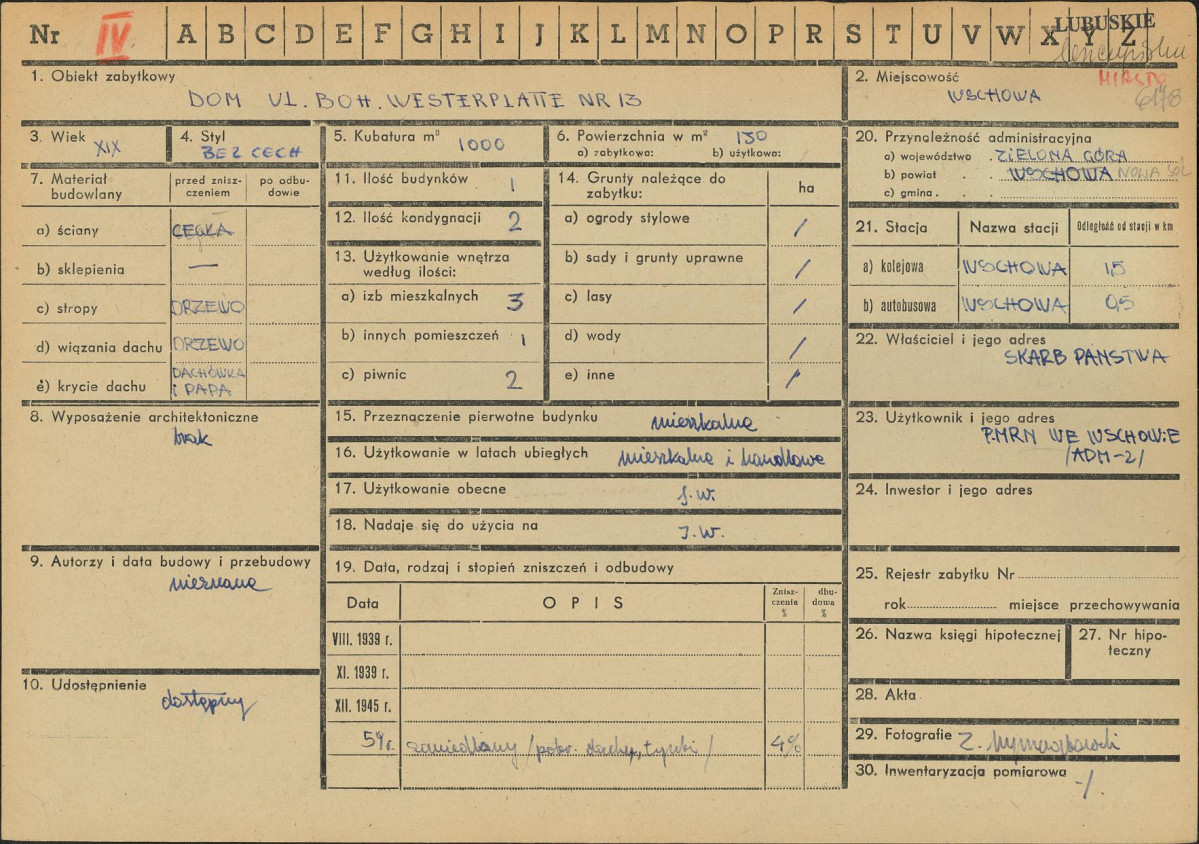 Nr IV A B C D E F G H I J K L M N O P R S T U V W X Y Z
LUBUSKIE
MIASTO
6178
1. Obiekt zabytkowy
DOM UL. BOH. WESTERPLATTE NR 13
2. Miejscowość
WSCHOWA
3. Wiek
XIX
4. Styl
BEZ CECH
5. Kubatura m³
1000
6. Powierzchnia w m²
150
a) zabytkowa: b) użytkowa:
7. Materiał budowlany
przed zniszczeniem
po odbudowie
a) ściany CEGŁA
b) sklepienia —
c) stropy DRZEWO
d) wiązania dachu DRZEWO
e) krycie dachu DACHÓWKA
i PAPA
8. Wyposażenie architektoniczne
brak
9. Autorzy i data budowy i przebudowy
nieznane
10. Udostępnienie
dostępny
11. Ilość budynków 1
12. Ilość kondygnacji 2
13. Użytkowanie wnętrza
według ilości:
a) izb mieszkalnych 3
b) innych pomieszczeń 1
c) piwnic 2
14. Grunty należące do
zabytku:
ha
a) ogrody stylowe /
b) sady i grunty uprawne /
c) lasy /
d) wody /
e) inne /
15. Przeznaczenie pierwotne budynku mieszkalne
16. Użytkowanie w latach ubiegłych mieszkalne i handlowe
17. Użytkowanie obecne j.w.
18. Nadaje się do użycia na J.W.
19. Data, rodzaj i stopień zniszczeń i odbudowy
Data OPIS Zniszczenia % dbudowa %
VIII. 1939 r.
XI. 1939 r.
XII. 1945 r.
59 r. zaniedbany /pokr. dachu, tynki/ 4%
20. Przynależność administracyjna
a) województwo . ZIELONA GÓRA
b) powiat . . WSCHOWA NOWA SÓL
c) gmina . .
21. Stacja Nazwa stacji Odległość od stacji w km
a) kolejowa WSCHOWA 1,5
b) autobusowa WSCHOWA 0,5
22. Właściciel i jego adres
SKARB PAŃSTWA
23. Użytkownik i jego adres
P.MRN WE WSCHOWIE
/ADM-2/
24. Inwestor i jego adres
25. Rejestr zabytku Nr
rok miejsce przechowywania
26. Nazwa księgi hipotecznej
27. Nr hipoteczny
28. Akta
29. Fotografie Z.
30. Inwentaryzacja pomiarowa
-/